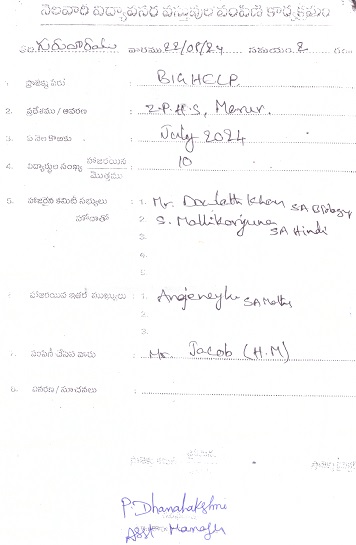 నెలవారి విద్యావసర వస్తువుల పంపిణి కార్యక్రమం
గురువారము వారము 22/08/24 సమయం 2
1. ప్రాజెక్టు పేరు : BIGHELP.
2. ప్రదేశము / ఆవరణ : Z.P.H.S, Merur.
3. ఏ నెల కొఱకు : July 2024
4. విద్యార్థుల సంఖ్య హాజరయిన : 10
మొత్తము
5. హాజరైన కమిటీ సభ్యులు : 1. Mr. Doulath Khan SA Biology
హోదాతో 2. S. Mallikarjuna SA Hindi
3.
హాజరయిన ఇతర ముఖ్యులు : 1. Anjaneyulu SA Maths
2.
3.
పంపిణి చేసిన వారు : Mr. Jacob (H.M)
8. వివరణ / సూచనలు :
P. Dhanalakshmi
Asst Manager